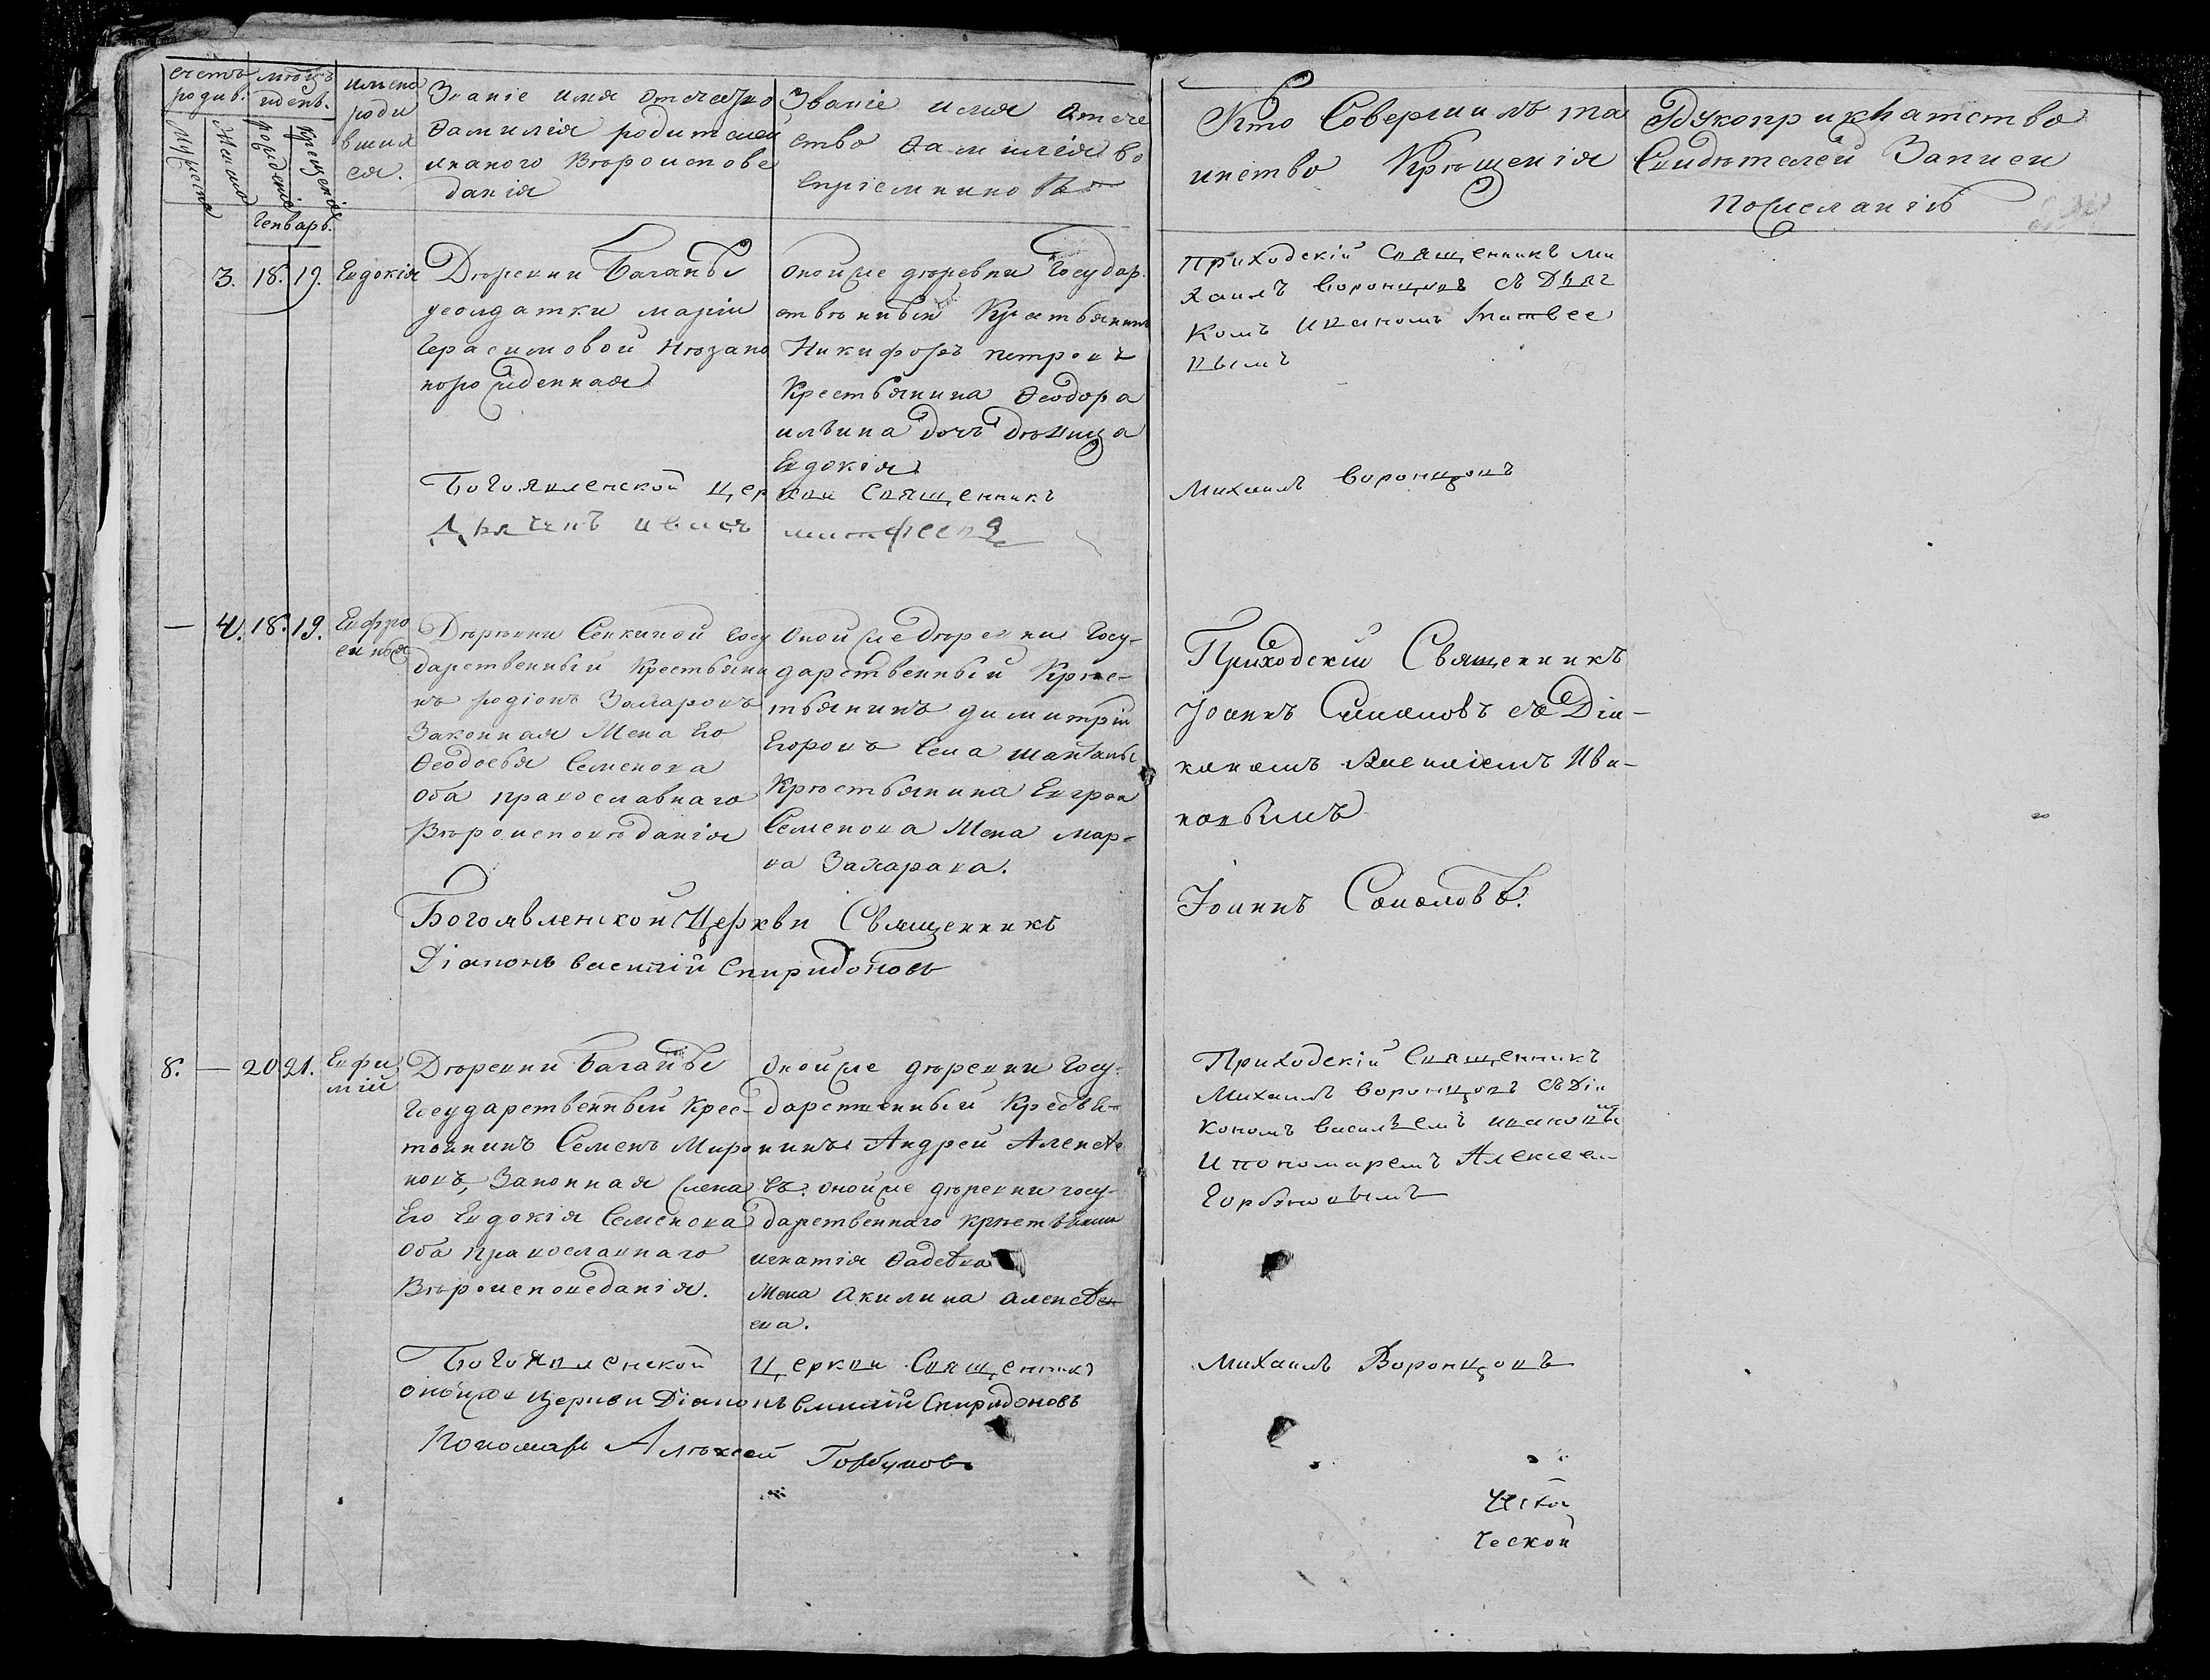 счетъ родив:
мѣсяцъ и день.
имена роди вшихся.
Званіе имя отечество
Фамилія родителей
икакого Вѣроисповѣ
данія
Званіе имя отече
ство Фамилія во
спріемниковъ
Кто Совершилъ та
инство Крещенія
Рукоприкладство
Свидѣтелей Записи
Пожеланію
Мужеска
Женска
рожденіе
крещеніе
Генварь.
3. 18. 19. Евдокія
Дѣревни Баганы
усолдатки маріи
Герасимовой Незако
норожденная
оной же дѣревни Государ.
ственный Крестьянинъ
Никифоръ петровъ
Крестьянина Феодора
ильина дочь дѣвица
Евдокія
приходскій Священникъ ми
хаилъ Воронцовъ съ Дьяч
комъ Иваномъ Матвее
вымъ
Богоявленской церкви Священникъ Михаилъ Воронцовъ
Дьячекъ иванъ матфеевъ
— 4. 18. 19. Евфро
синья
Дѣревни Сенкиной Госу
дарственный Крестьяни
нъ родіонъ Захаровъ
Законная Жена Его
Феодосья Семенова
Оба православнаго
Вѣроисповѣданія
Оной же дѣревни Госу-
дарственный Крѣс-
тьянинъ димитрій
Егоровъ Села
Крѣстьянина
Семенова Жена Мар-
ва Захарова.
Приходскій Священникъ
Іоаннъ Соколовъ съ Діа-
кономъ Василіемъ Ива-
новымъ
Богоявленской Церкви Священникъ Іоаннъ Соколовъ.
Діаконъ василій Спиридоновъ
8. — 20 21. Евфи
мій
Дѣревни Баганы
Государственный Крес-
тьянинъ Семенъ Миро
новъ, Законная жена
Его Евдокія Семенова
Оба православнаго
Вѣроисповеданія.
Оной же дѣревни Госу-
дарственный Кресьтя-
нинъ Андрей Алексѣе
въ. оной же дѣревни госу-
дарственнаго крѣстьянина
игнатія Фадеѣва
Жена Акилина алексѣе
ева.
Приходскій Священникъ
Михаилъ Воронцовъ съ Діа
кономъ василіемъ ивановы
и пономаремъ Алексеем
Горбуновымъ
Богоявленской Церкви Священникъ Михаилъ Воронцовъ
оной же Церкви Діаконъ василій Спиридоновъ
Пономарь Алѣксей Горбуновъ
ческой